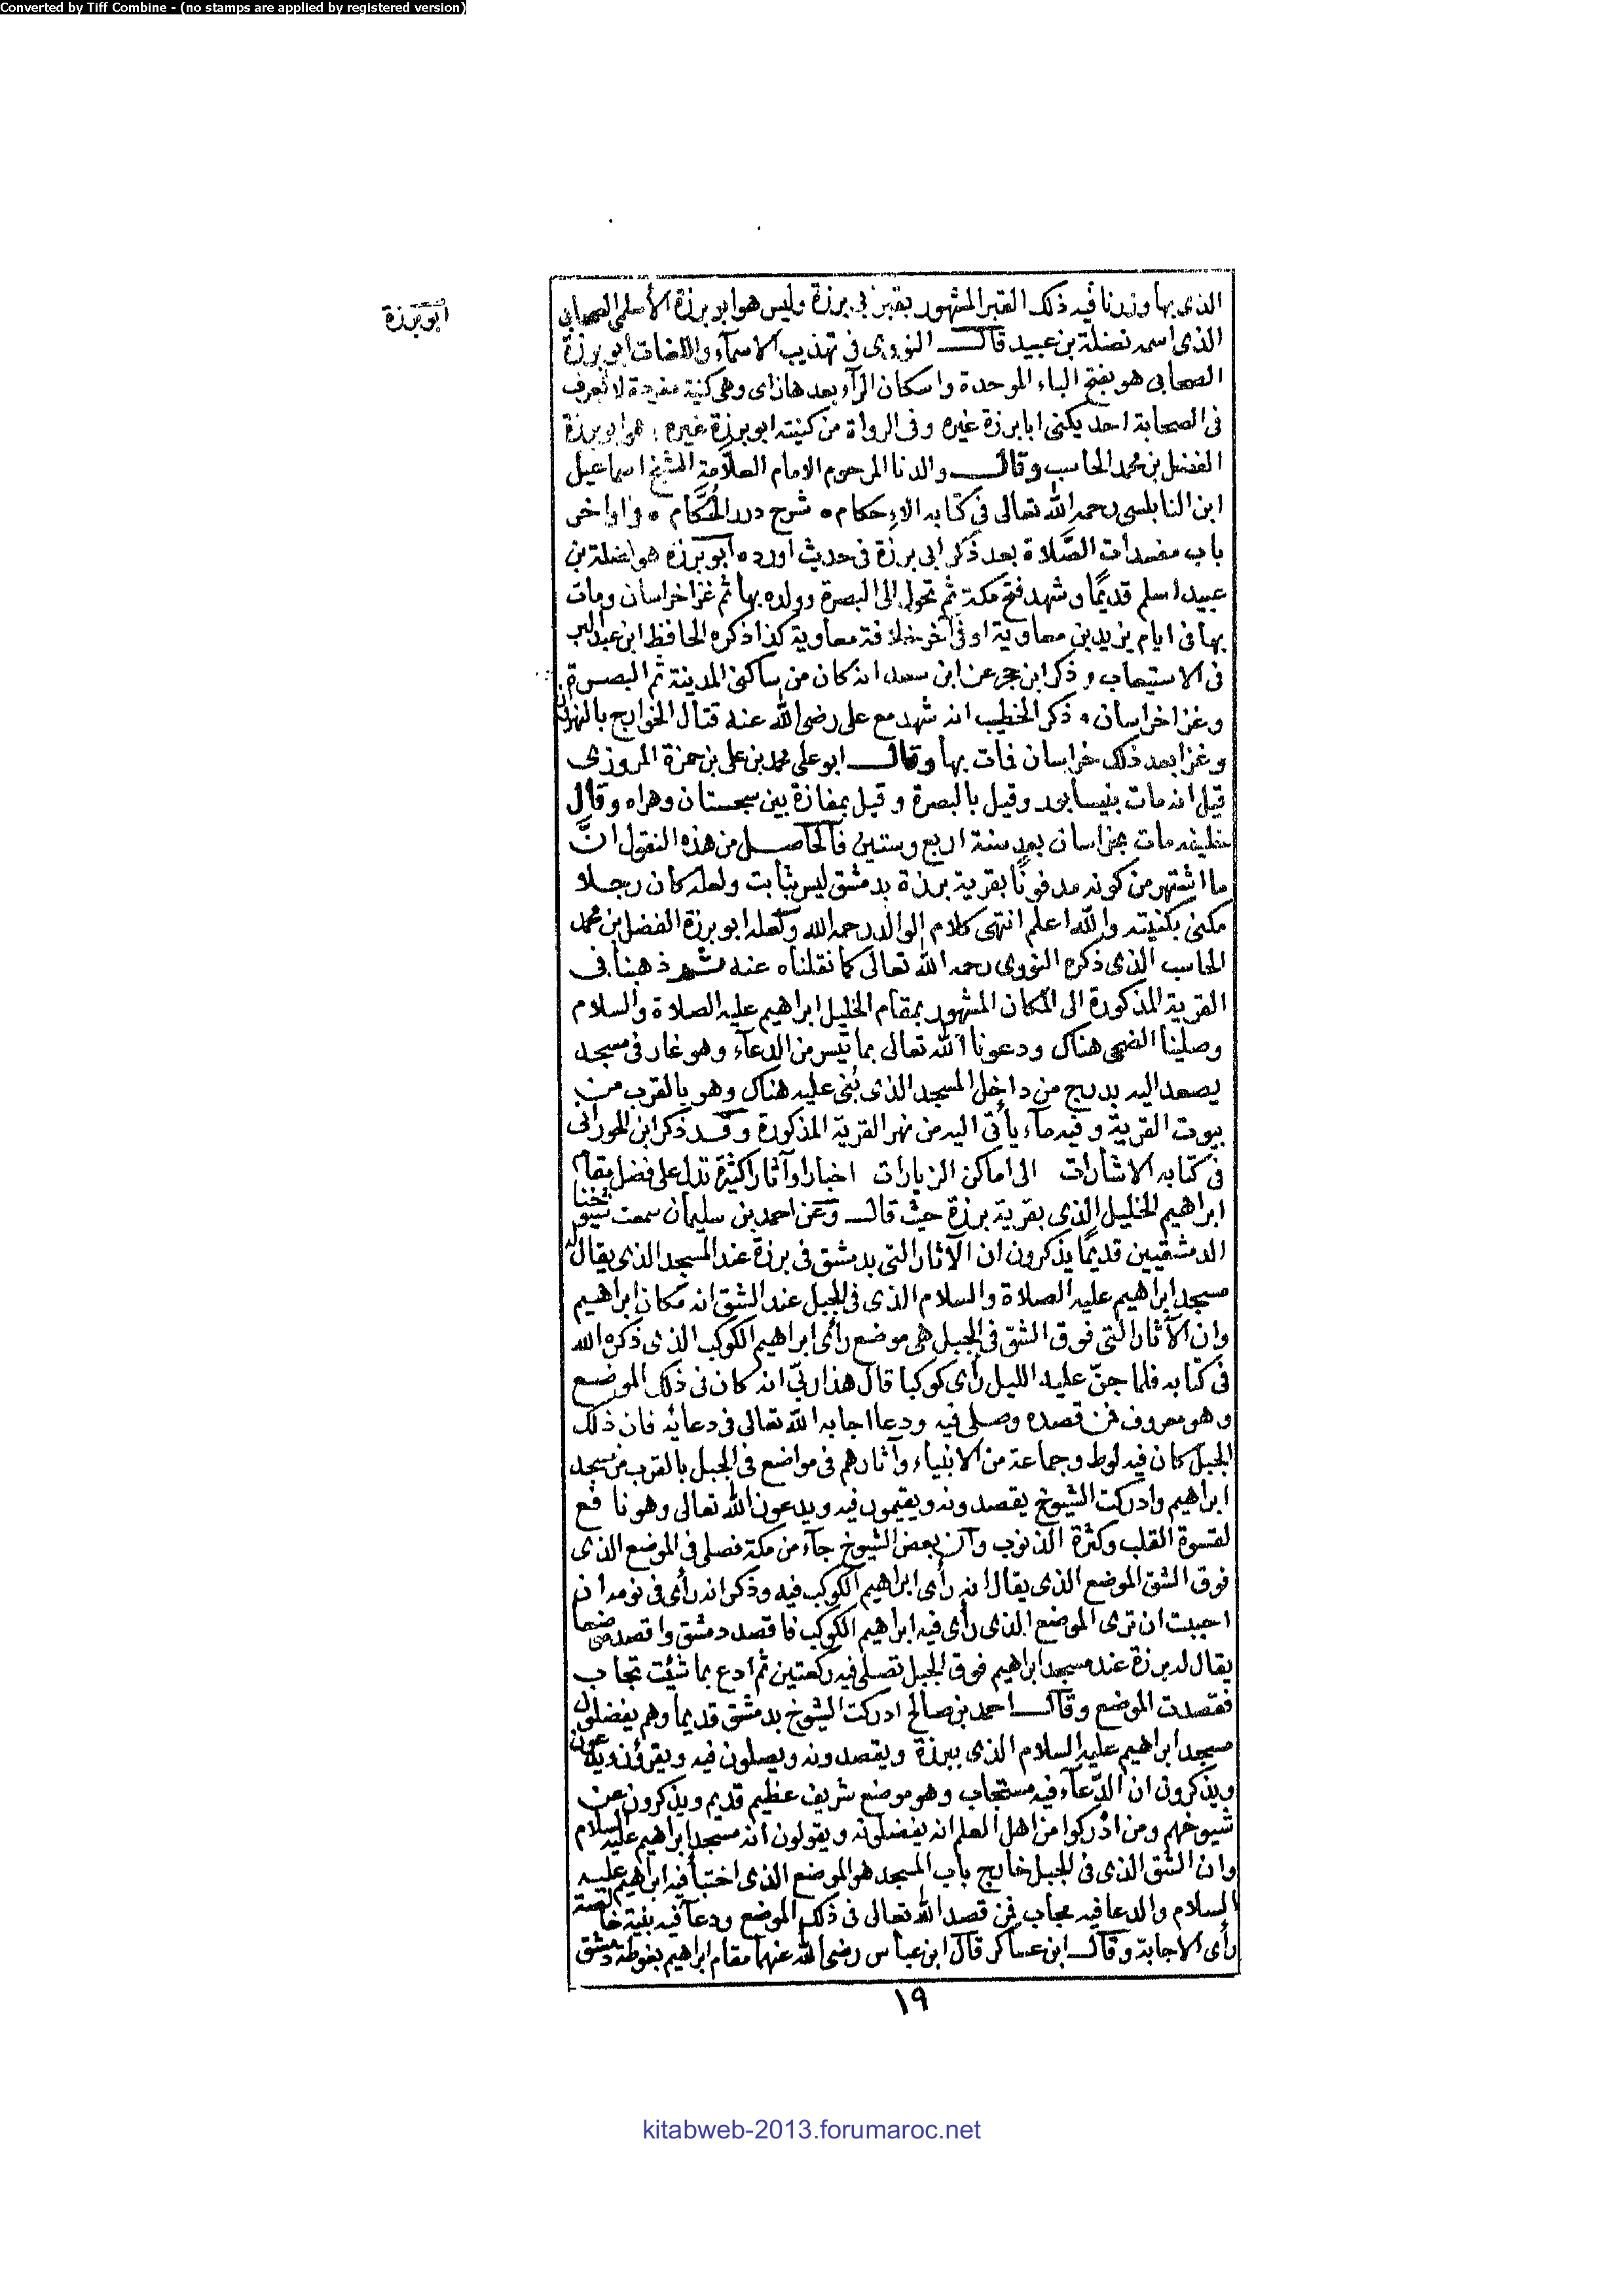 Converted by Tiff Combine - (no stamps are applied by registered version)
ابو برزة
الذى بها وزرنا فيه ذلك القبر المشهور بقبر ابى برزة وليس هو ابو برزة الأسلمى الصحابى
الذى اسمه نضلة بن عبيد قال النووى فى تهذيب الاسمآء واللغات ابو برزة
الصحابى هو بفتح الباء الموحدة واسكان الرآء بعدها زاى وهى كنية مفردة لا تعرف
فى الصحابة احد يكنى ابا برزة غيره وفى الرواة من كنيته ابو برزة غيره هو ابو برزة
الفضل بن محمد الحاسب وقال والدنا المرحوم الامام العلّامة الشيخ اسماعيل
ابن النابلسى رحمه الله تعالى فى كتابه الاحكام شرح درر الحُكّام واواخر
باب مفسدات الصَّلاة بعد ذكر ابى برزة فى حديث اورده ابو برزة هو نضلة بن
عبيد اسلم قديمًا وشهد فتح مكة ثم تحول الى البصرة وولده بها ثم غزا خراسان ومات
بها فى ايام يزيد بن معاوية او فى آخر خلافة معاوية كذا ذكره الحافظ ابن عبد البر
فى الاستيعاب وذكر ابن حجر عن ابن سعد انه كان من ساكنى المدينة ثم البصرة
وغزا خراسان وذكر الخطيب انه شهد مع على رضى الله عنه قتال الخوارج بالنهروان
وغزا بعد ذلك خراسان فمات بها وقال ابو على محمد بن على بن حمزة المروزى
قيل انه مات بنيسابور وقيل بالبصرة وقيل بمفازة بين سجستان وهراه وقال
خليفه مات بخراسان بعد سنة اربع وستين فالحاصل من هذه النقول انَّ
ما اشتهر من كونه مدفونًا بقرية برزة بدمشق ليس بثابت ولعله كان رجلا
مكنى بكنيته والله اعلم انتهى كلام الوالد رحمه الله ولعله ابو برزة الفضل بن محمد
الحاسب الذى ذكره النووى رحمه الله تعالى كما نقلناه عنه ثم ذهبنا فى
القرية المذكورة الى المكان المشهور بمقام الخليل ابراهيم عليه الصلاة والسلام
وصلّينا الضحى هناك ودعونا الله تعالى بما تيسر من الدعآء وهو غار فى مسجد
يصعد اليه بدرج من داخل المسجد الذى بُنى عليه هناك وهو بالقرب من
بيوت القرية وفيه مآء يأتى اليه من نهر القرية المذكورة وقد ذكر ابن الحورانى
فى كتابه الاشارات الى اماكن الزيارات اخبارا وآثارا كثيرة تدل على فضل مقام
ابراهيم الخليل الذى بقرية برزة حيث قال وعن احمد بن سليمان سمعت شيوخنا
الدمشقيين قديمًا يذكرون ان الآثار التى بدمشق فى برزة عند المسجد الذى يقال له
مسجد ابراهيم عليه الصلاة والسلام الذى فى الجبل عند الشق انه مكان ابراهيم
وان الآثار التى فوق الشق فى الجبل هى موضع رأى ابراهيم الكوكب الذى ذكره الله
فى كتابه فلما جنّ عليه الليل رأى كوكبا قال هذا ربّى انه كان فى ذلك الموضع
وهو معروف فمن قصده وصلى فيه ودعا اجابه الله تعالى فى دعائه فان ذلك
الجبل كان فيه لوط وجماعة من الانبياء وآثارهم فى مواضع فى الجبل بالقرب من مسجد
ابراهيم وادركت الشيوخ يقصدونه ويقيمون فيه ويدعون الله تعالى وهو نافع
لقسوة القلب وكثرة الذنوب وان بعض الشيوخ جآء من مكة فصلى فى الموضع الذى
فوق الشق الموضع الذى يقال انه رأى ابراهيم الكوكب فيه وذكر انه رأى فى نومه ان
احببت ان ترى الموضع الذى رأى فيه ابراهيم الكوكب فاقصد دمشق واقصد موضعا
يقال له برزة عند مسجد ابراهيم فوق الجبل تصلى فيه ركعتين ثم ادع بما شئت تجاب
فقصدت الموضع وقال احمد بن صالح ادركت الشيوخ بدمشق قديما وهم يفضلون
مسجد ابراهيم عليه السلام الذى ببرزة ويقصدونه ويصلون فيه ويقرؤن ويدعون
ويذكرون ان الدّعآء فيه مستجاب وهو موضع شريف عظيم قديم ويذكرون عن
شيوخهم ومن ادركوا من اهل العلم انه يفضلونه ويقولون انه مسجد ابراهيم عليه السلام
وان الشق الذى فى الجبل خارج باب المسجد هو الموضع الذى اختبأ فيه ابراهيم عليه
السلام والدعا فيه مجاب فمن قصد الله تعالى فى ذلك الموضع ودعا فيه بنية خالصة
رأى الاجابة وقال ابن عساكر قال ابن عباس رضى الله عنهما مقام ابراهيم بغوطة دمشق
١٩
kitabweb-2013.forumaroc.net